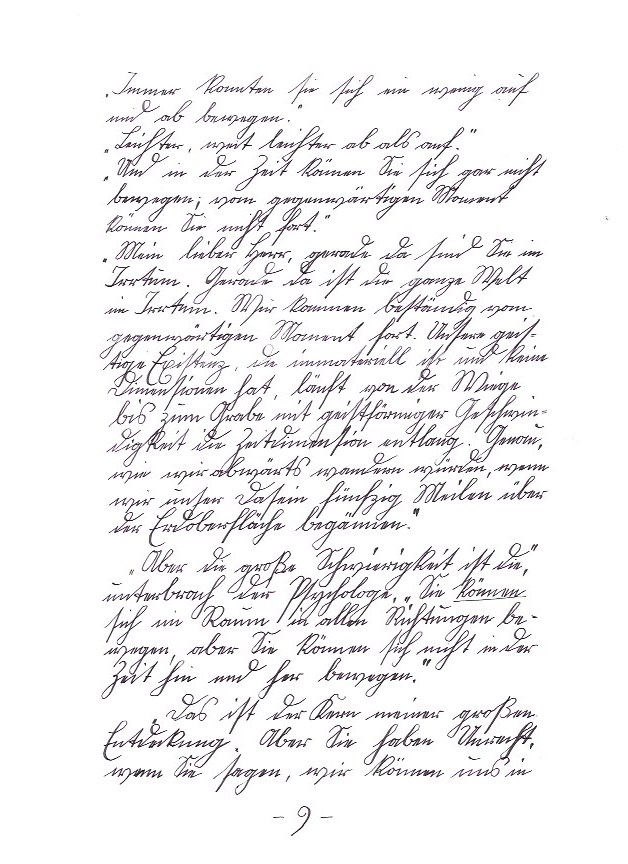 „Immer konnten sie sich ein wenig auf
und ab bewegen.“
„Leichter, weit leichter ab als auf.“
„Und in der Zeit können Sie sich gar nicht
bewegen, vom gegenwärtigen Moment
können Sie nicht fort.“
„Mein lieber Herr, gerade da sind Sie im
Irrtum. Gerade da ist die ganze Welt
im Irrtum. Wir kommen beständig vom
gegenwärtigen Moment fort. Unsere geis-
tige Existenz, die immateriell ist und keine
Dimensionen hat, läuft von der Wiege
bis zum Grabe mit gleichförmiger Geschwin-
digkeit die Zeitdimension entlang. Genau,
wie wir abwärts wandern würden, wenn
wir unser Dasein fünfzig Meilen über
der Erdoberfläche begännen.“
„Aber die große Schwierigkeit ist die“,
unterbrach der Psychologe, „Sie können
sich im Raum in allen Richtungen be-
wegen, aber Sie können sich nicht in der
Zeit hin und her bewegen.“
„Das ist der Kern meiner großen
Entdeckung. Aber Sie haben Unrecht,
wenn Sie sagen, wir können uns in
- 9 -